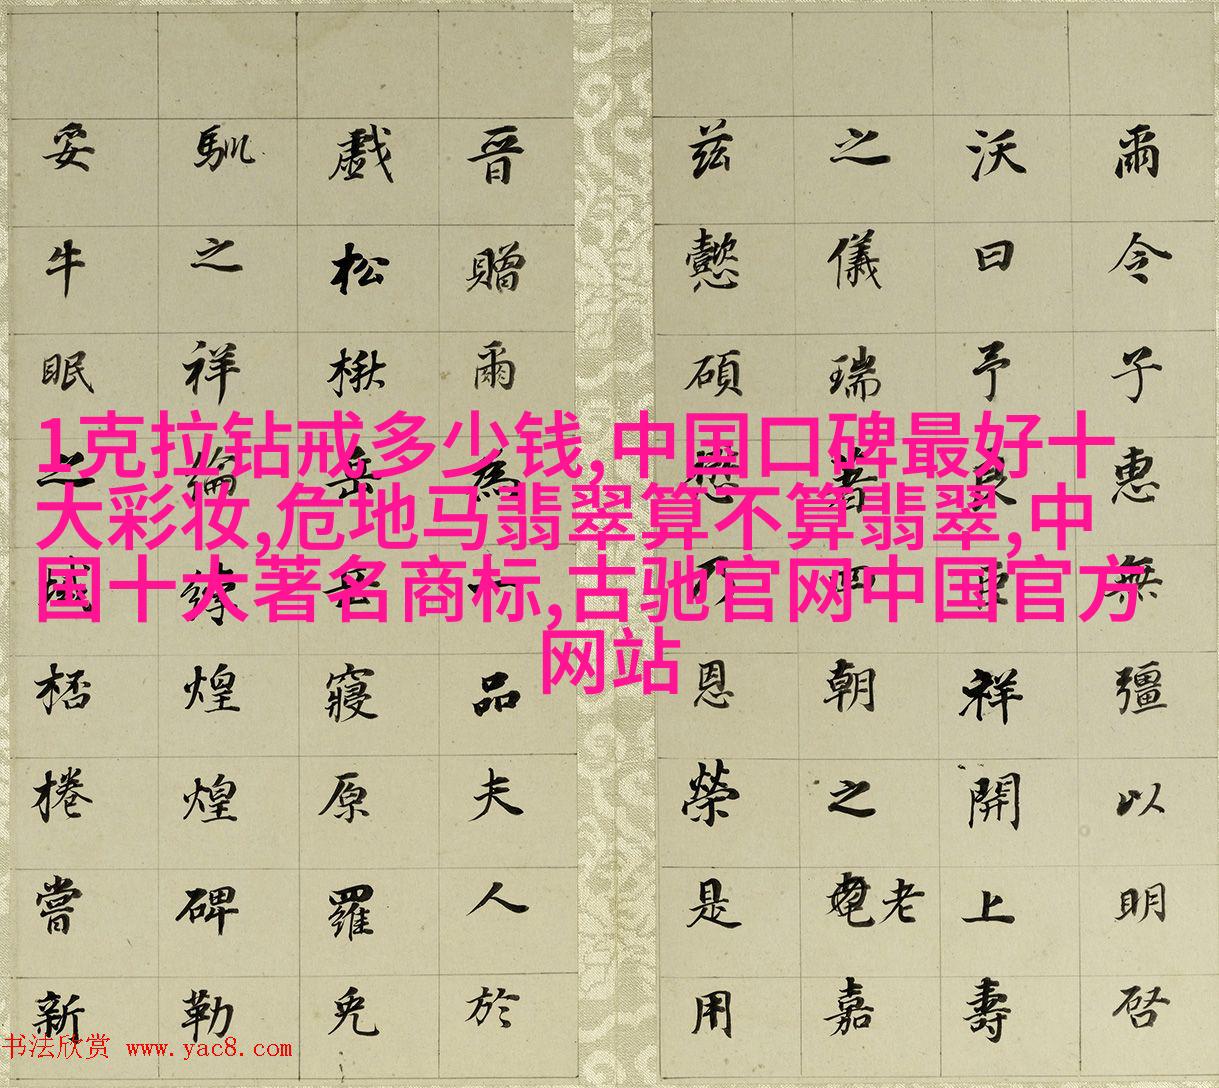 爾令子惠無彊以明啓
沃曰予良臣祥開上壽
之儀瑞著四朝之老嘉
茲懿碩懋乃恩榮是用
晉贈爾為一品夫人於
戲松楸岳岳寢原羅兎
馴之祥綸綍煌煌碑勒
妥牛眠之域桮棬嘗新
1克拉钻戒多少钱,中国口碑最好十
大彩妆,危地马翡翠算不算翡翠,中
国十大著名商标,古驰官网中国官方
网站
书法欣赏 www.yac8.com